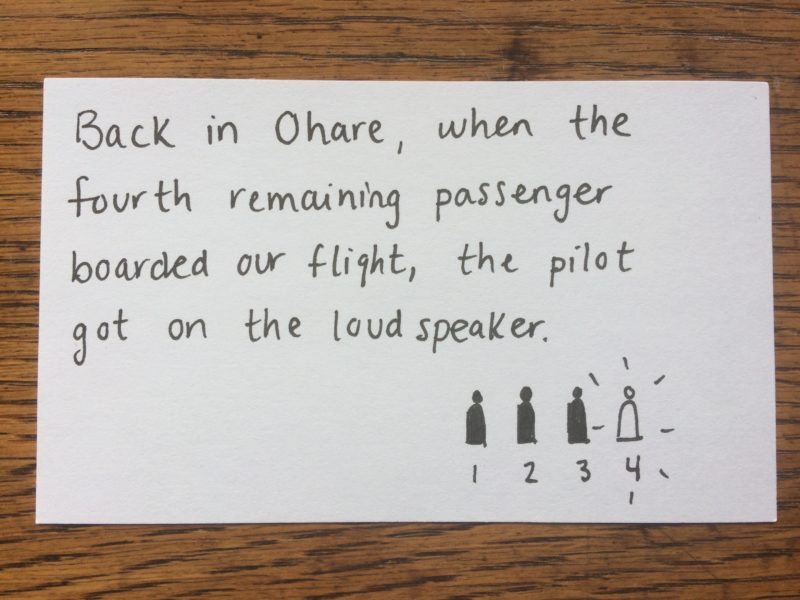 Back in Ohare, when the
fourth remaining passenger
boarded our flight, the pilot
got on the loud speaker.
1 2 3 4